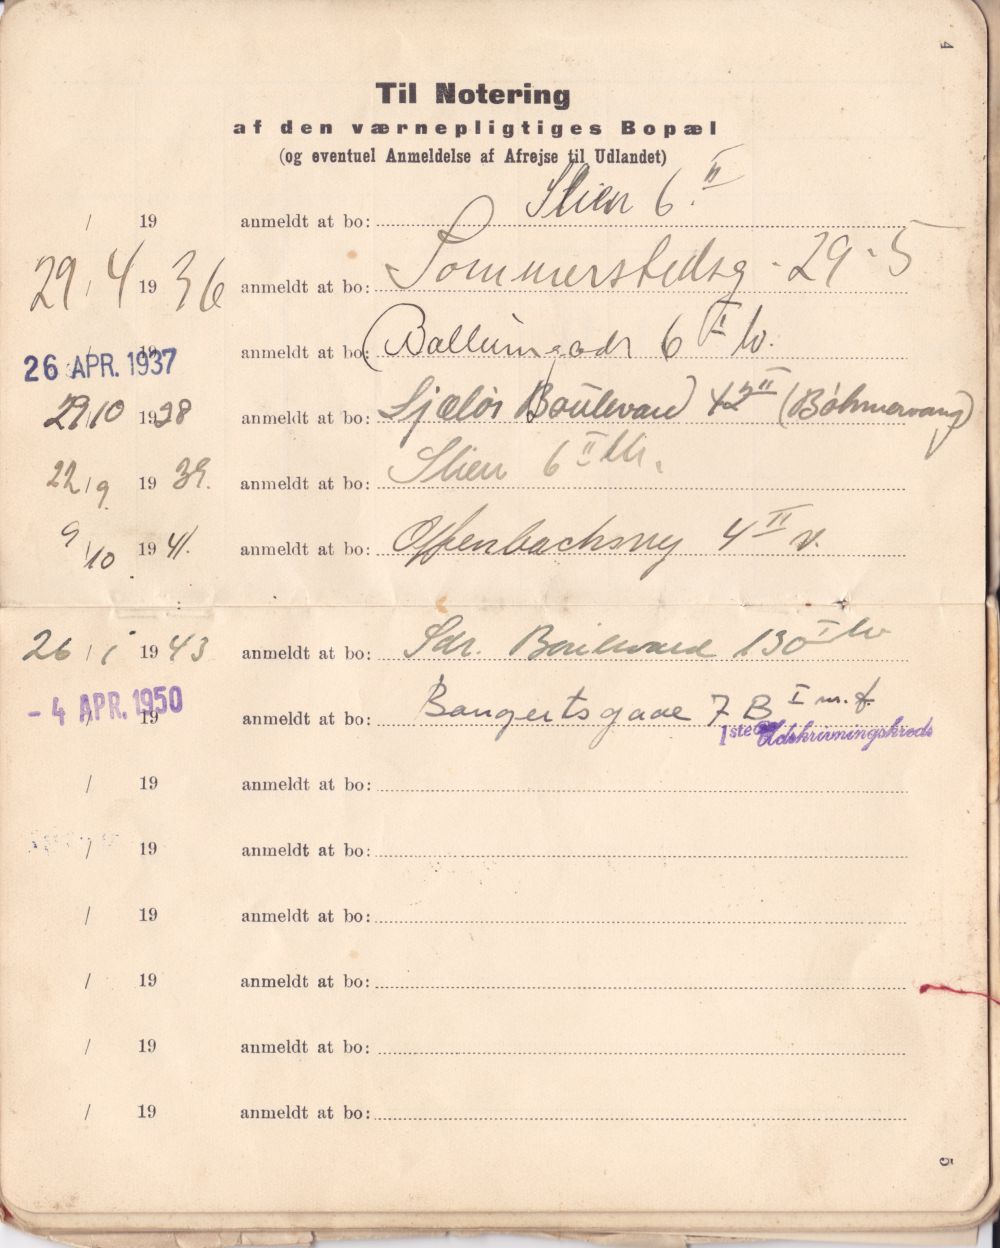 4
Til Notering
af den værnepligtiges Bopæl
(og eventuel Anmeldelse af Afrejse til Udlandet)
/ 19 anmeldt at bo: Slien 6 II
29/4 1936 anmeldt at bo: Sommerstedsg. 29.5
26 APR. 1937 / 19 anmeldt at bo: (Ballumgade 6 I
29/10 1938 anmeldt at bo: Sjælør Boulevard) 42 II (Böhmervang)
22/9 1939. anmeldt at bo: Slien 6 II th.
9/10 1941. anmeldt at bo: Offenbachsvej 4 II v.
26/1 1943 anmeldt at bo: Sdr. Boulevard 130 I tv
- 4 APR. 1950 / 19 anmeldt at bo: Bangertsgade 7 B I m.f.
1ste Udskrivningskreds
/ 19 anmeldt at bo:
/ 19 anmeldt at bo:
/ 19 anmeldt at bo:
/ 19 anmeldt at bo:
/ 19 anmeldt at bo:
/ 19 anmeldt at bo:
5